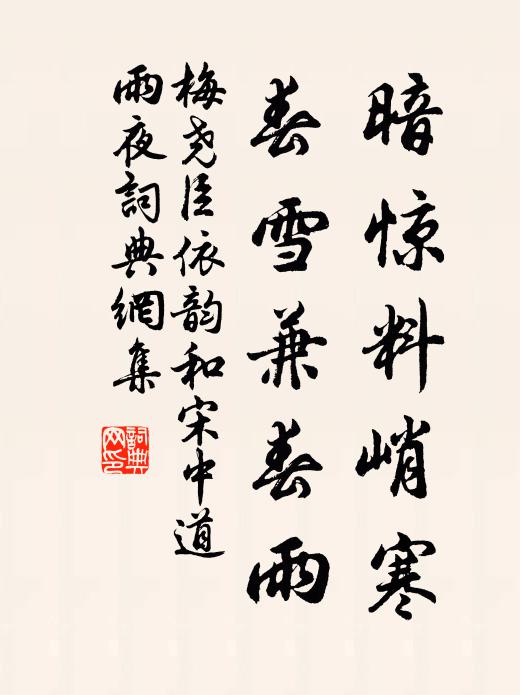 暗惊料峭寒
春雪兼春雨
梅尧臣依韵和宋中道
雨夜詞典網集
詞典
网印